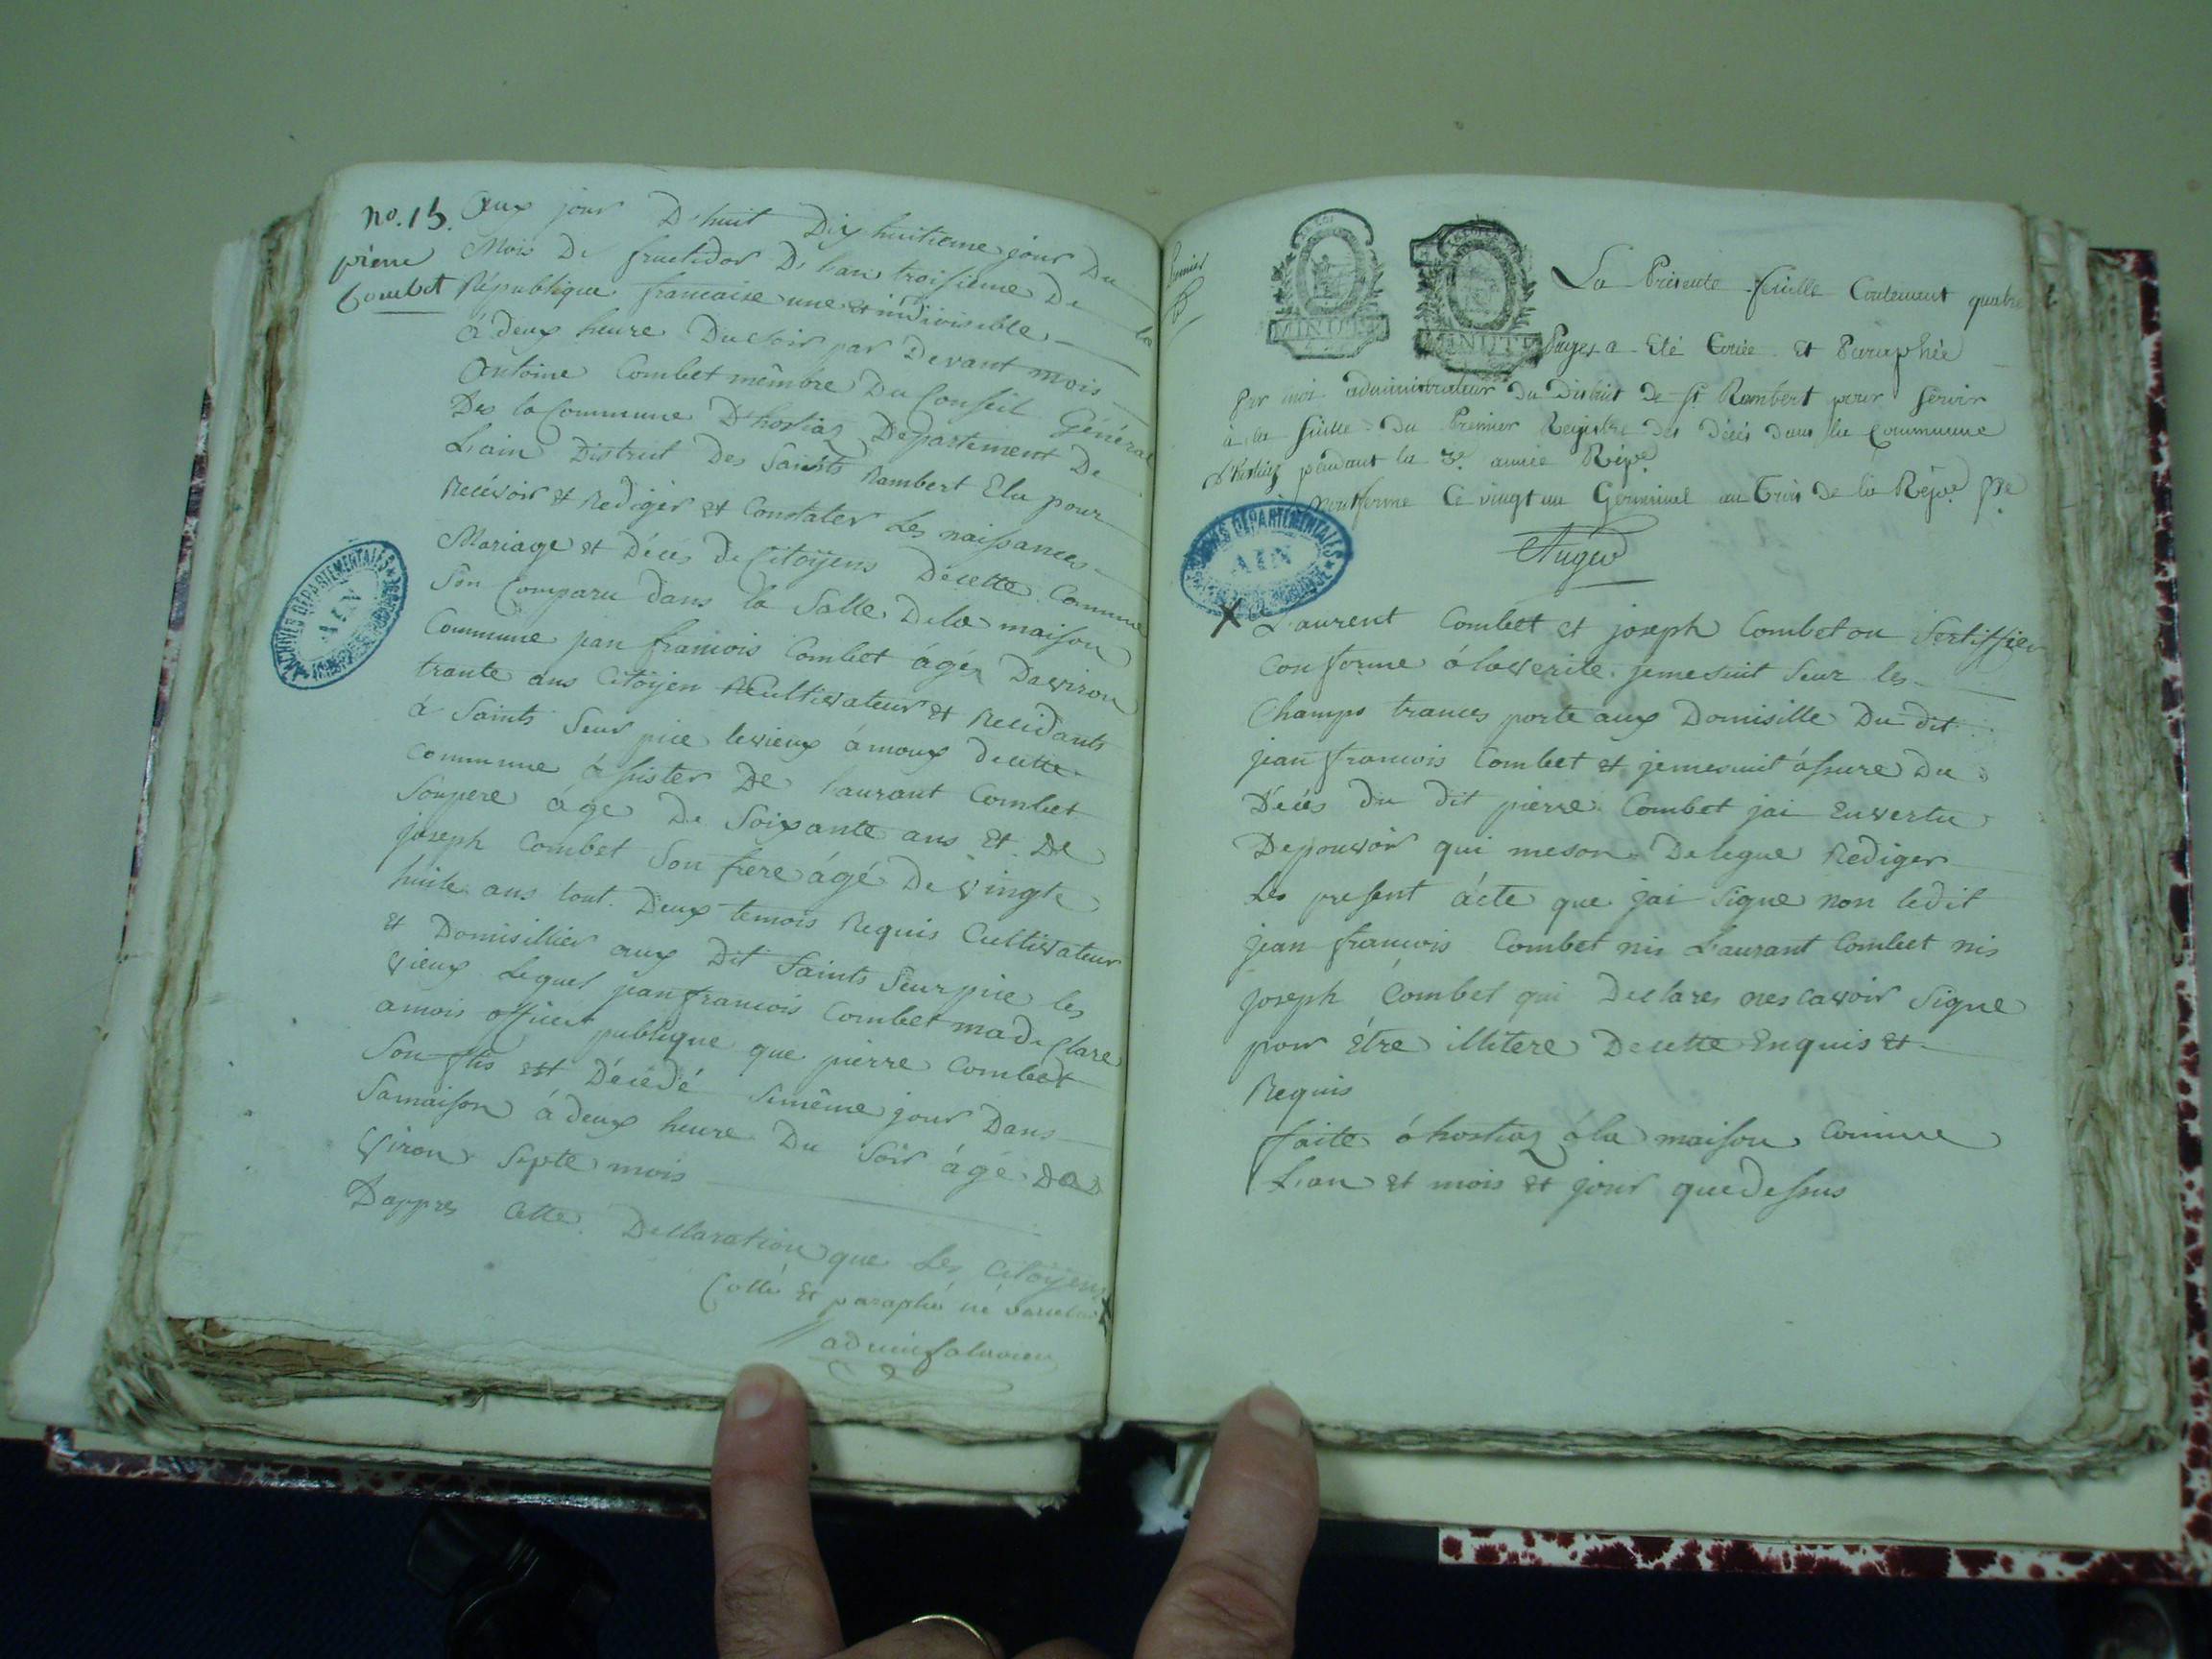 no. 15.
pierre
Combet
Aux jour D'huit Dix huitieme jour Du
Mois De fructidor De lan troisieme De la
République francaise une et indivisible
à deux heure Du Soir par Devant mois
Antoine Combet mêmbre Du Conseil Général
Des la Commune D'hostiaz Departement De
L'ain District Des Saints Rambert Elu pour
Recevoir et Rediger et Constater Les naissances
Mariage et Décés de Citoÿens Decette Commune
Son Comparu dans la Salle Dela maison
Commune jean francois Combet àgéz Daviron
trante ans Citoÿen Cultivateur et Recidants
à Saints Seurpice levieux amoux decette
commune àssister De Laurant Combet
Sonpere àge De Soixante ans Et De
joseph Combet Son frere àgé De vingte
huite ans tout Deux temois Requis Cultivateur
et Domisillier aux Dit Saints Seurpice les
vieux Lequel jean francois Combet ma declare
amois officier publique que pierre Combet
Son fils est Décédé Semême jour Dans
Samaison à deux heure Du Soir àgé Da
viron Septe mois
Dappres Cette Declaration que Les Citoÿens
Cotté et paraphé né varietur X
MINUTE
MINUTE
La Présente feuille Contenant quatre
Pages a Eté Cotée et Paraphée
Par moi administrateur du District de St Rambert pour Servir
à la Suitte du Premier Registre des décés dans la Commune
d'hostiaz pendant la 3e année Répe
Montferme Ce vingt un Germinal an Trois de la Répe
Auger
ARCHIVES DÉPARTEMENTALES
AIN
ARCHIVES DÉPARTEMENTALES
AIN
X Laurent Combet et joseph Combet on Sertiffier
Conforme àlaverite jemesuit Seur les
Champs trances porte aux Domisille Du dit
jean francois Combet et jemesuit àssure Du
Décés du dit pierre Combet jai Envertu
Depouvoir qui meson Delegue Rediger
Les present àcte que jai Signe non ledit
jean francois Combet nis Laurant Combet nis
Joseph Combet qui Declares nescavoir Signe
pour Etre illitere Decette Enquis et
Requis
faite à hostiaz àla maison Comune
L'an et mois et jour que dessus